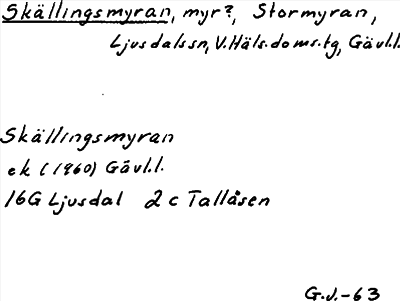 Skällingsmyran, myr?, Stormyran,
Ljusdalssn, V.Häls.doms.tg, Gävl.l.
Skällingsmyran
ek (1960) Gävl.l.
16G Ljusdal 2 c Tallåsen
G.J.-63